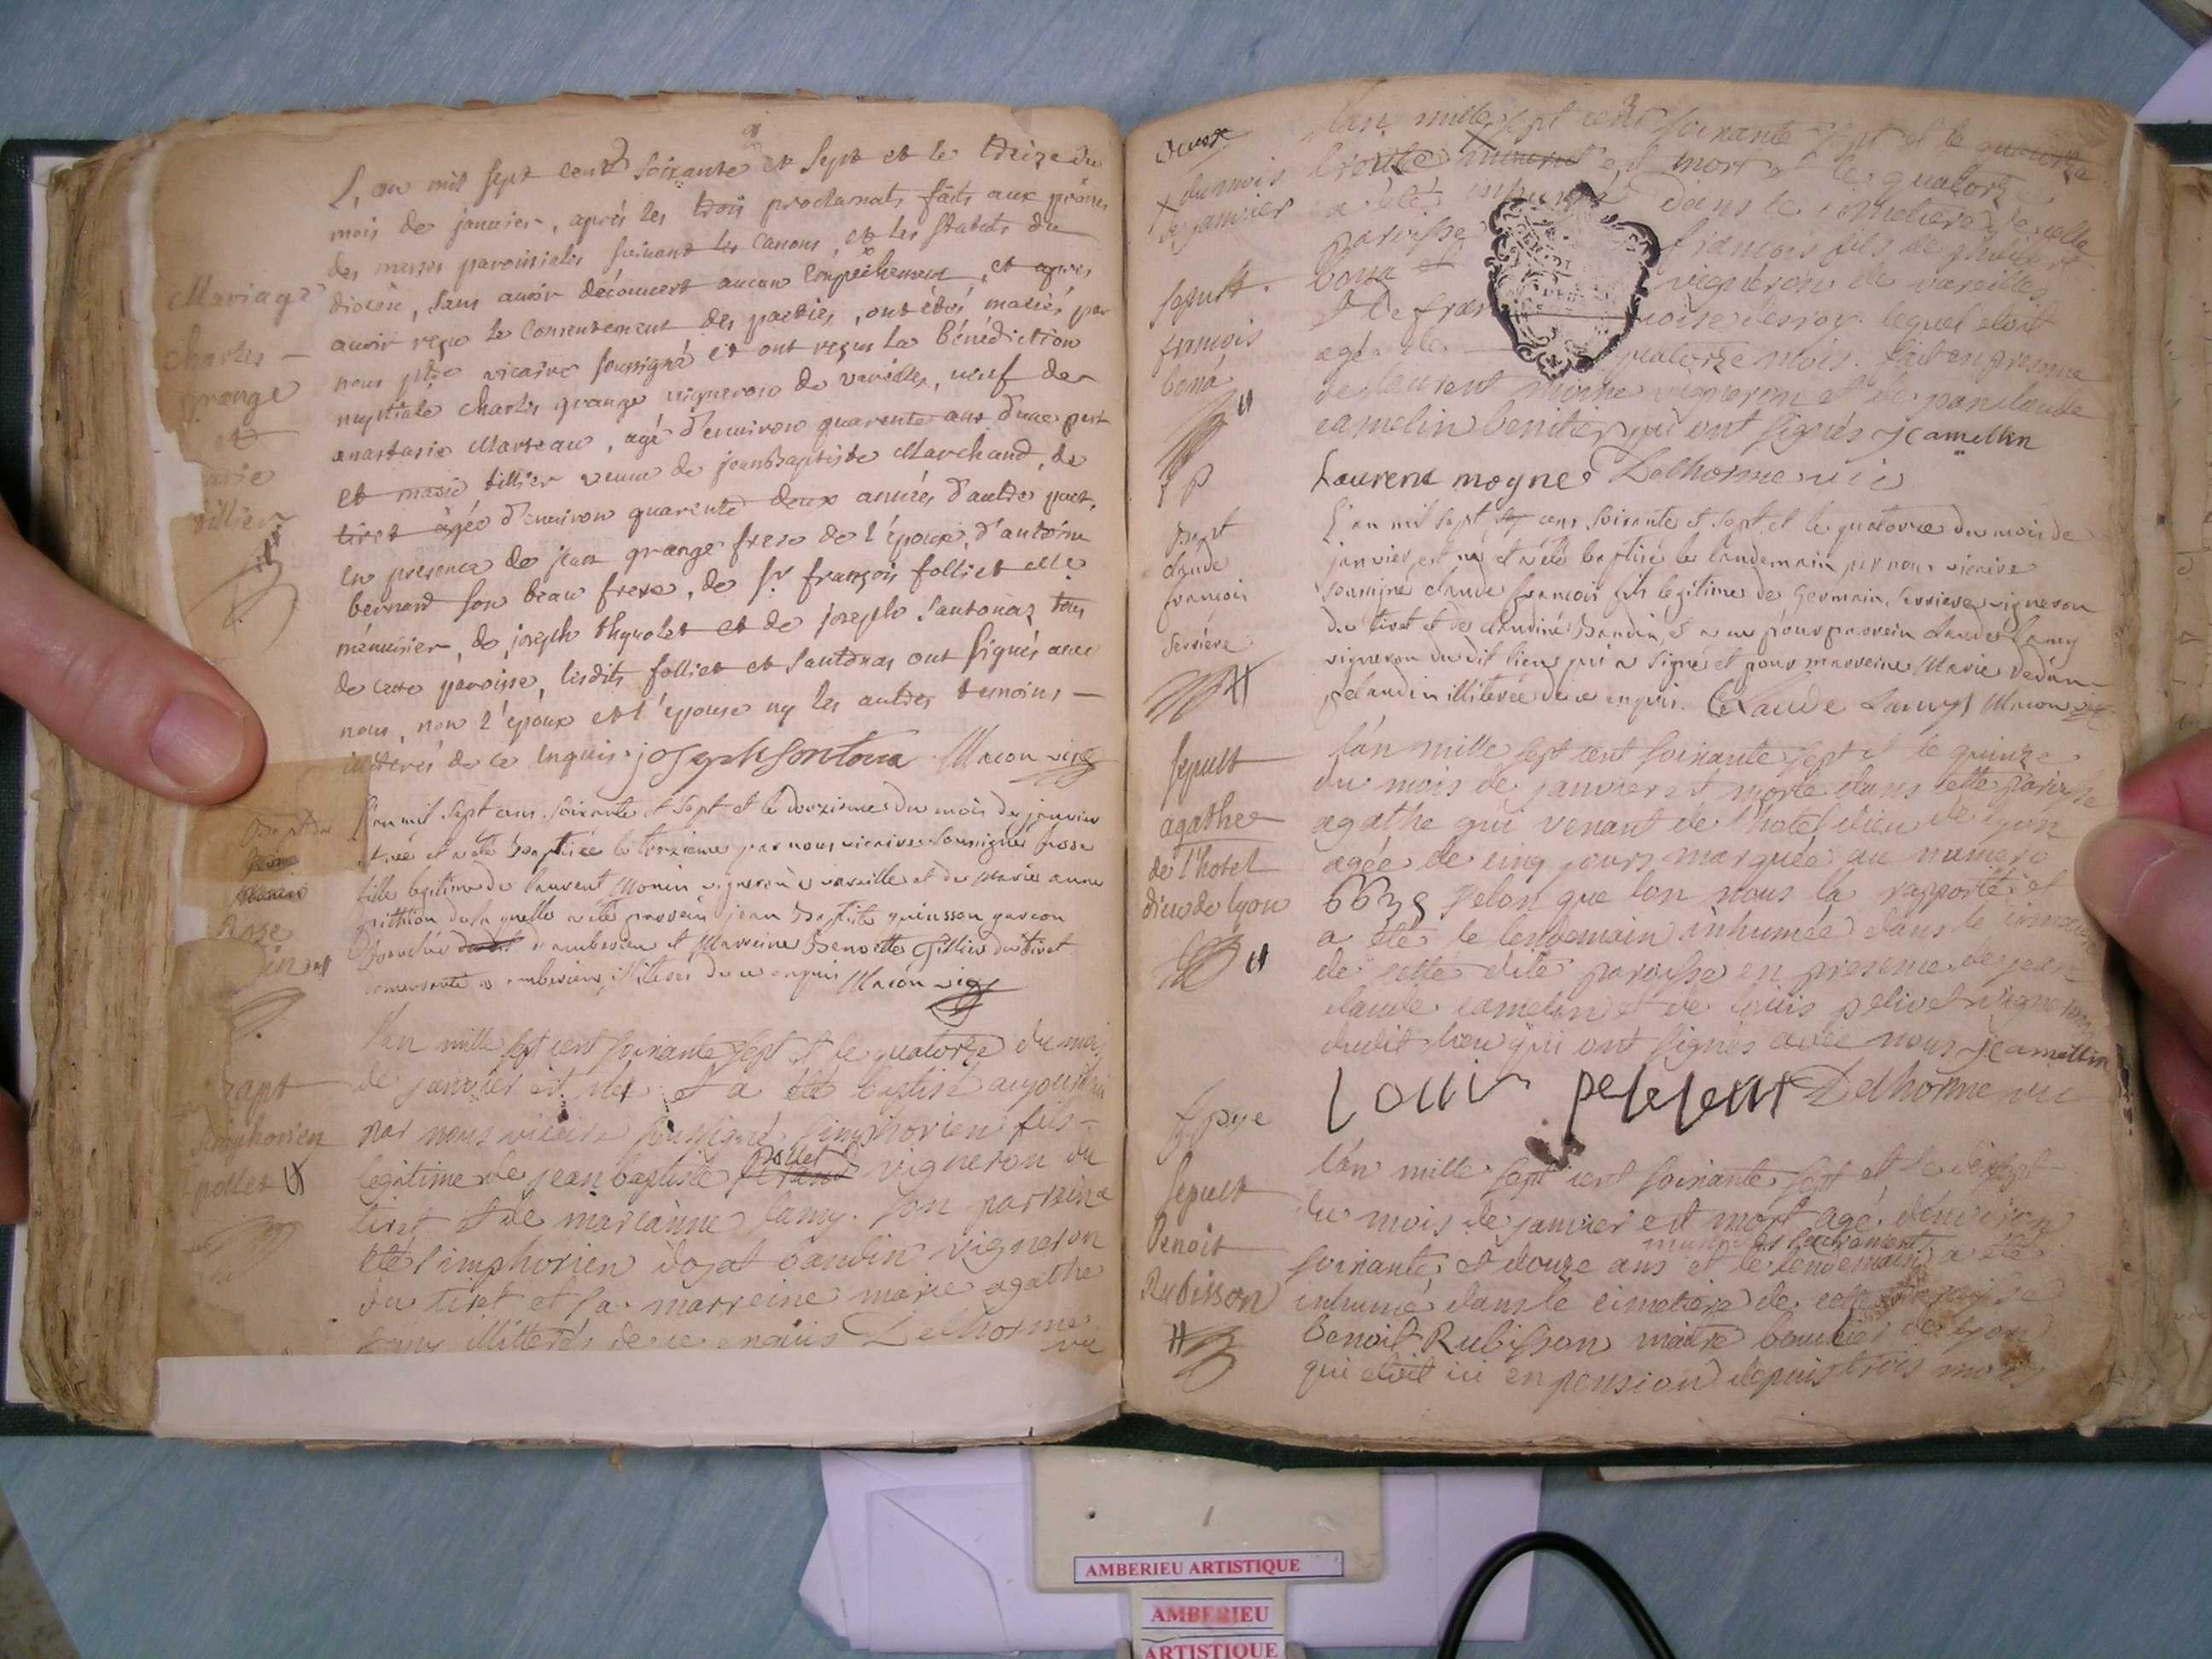 Mariage
charles
grange
et
marie
tillier
L'an mil sept cent soixante et sept et le treize du
mois de janvier, aprés les trois proclamats faits aux prônes
des messes paroissiales suivant les canons, et les statuts du
diocèse, sans avoir découvert aucun empêchement, et apres
avoir reçu le consentement des parties, ont étés mariés par
nous ptre vicaire soussigné et ont reçus la Bénédiction
nuptiale charles grange vigneron de vareilles, veuf de
anastasie Marteau, agé d'environ quarente ans d'une part
et marie tillier veuve de jean baptiste Marchand, de
tiret agée d'environ quarente deux années d'autre part,
en presence de jean grange frere de l'époux, d'antoine
bernard son beau frere, de sr françois folliet
ménuisier, de joseph thynolet et de joseph santonaz tous
de cette paroisse, lesdits folliet et santonas ont signés avec
nous, non l'époux et l'épouse ny les autres temoins
illiterés de ce enquis. joseph Sontona Macon vic
Rose
L'an mil sept cens soixante et sept et le douzieme du mois de janvier
est née et a eté baptisée le treizieme par nous vicaire soussigné rose
fille legitime de laurent Monin vigneron a vareille et de marie anne
de la quelle a été parrein jean Baptiste quinsson garcon
d'amberieu et Marreine Benoitte Tillier du tiret
illiteres de ce enquis Macon vic
bapt
simphorien
pollet
l'an mille sept cent soixante sept et le quatorze du mois
de janvier est né et a été baptisé aujourdhui
par nous vicaire soussigné simphorien fils
legitime de jean baptiste pollet vigneron du
tiret et de marianne lamy. son parrein a
été simphorien dojat baudin vigneron
du tiret et sa marreine marie agathe
lamy illitterés de ce enquis Delhorme
vic
du mois
de janvier
sepult.
francois
bona
l'an mille sept cent soixante sept et le quatorze
est mort et le quatorze
a été inhumé dans le cimetiere de celle
paroisse francois fils de philibert
bona vigneron de vareilles
et de fran oise lequel etoit
agé de quatorze mois. fait en presence
de laurent moine vigneron et de jean claude
camelin benitier qui ont signés jcamellin
Laurent mogne Delhorme vic
Bapt
claude
francois
serriere
L'an mil sept cens soixante et sept et le quatorze du mois de
janvier est né et a été baptisé le lendemain par nous vicaire
soussigné claude francois fils legitime de Germain serriere vigneron
du tiret et de claudine baudin et a eu pour parrein claude lamy
vigneron du dit lieu qui a signé et pour marreine Marie
illiterée de ce enquis. Claude Lamy Macon vic
sepult
agathe
de l'hotel
dieu de lyon
l'an mille sept cent soixante sept et le quinze
du mois de janvier est morte dans cette paroisse
agathe qui venant de l'hotel dieu de lyon
agée de cinq jours marquée au numero
selon que l'on nous la rapporté et
a été le lendemain inhumée dans le cimetiere
de cette dite paroisse en presence de jean
claude camelin et de louis pelivet vigneron
dudit lieu qui ont signés avec nous jcamellin
Delhorme vic
sepult
Benoit
Rubisson
l'an mille sept cent soixante sept et le dixsept
du mois de janvier est mort agé d'environ
muni des sacrements
soixante et douze ans et le lendemain a été
inhumé dans le cimetiere de cette paroisse
benoit Rubisson maitre boucher de lyon
qui etoit ici en pension depuis trois mois
AMBERIEU ARTISTIQUE
AMBERIEU
ARTISTIQUE